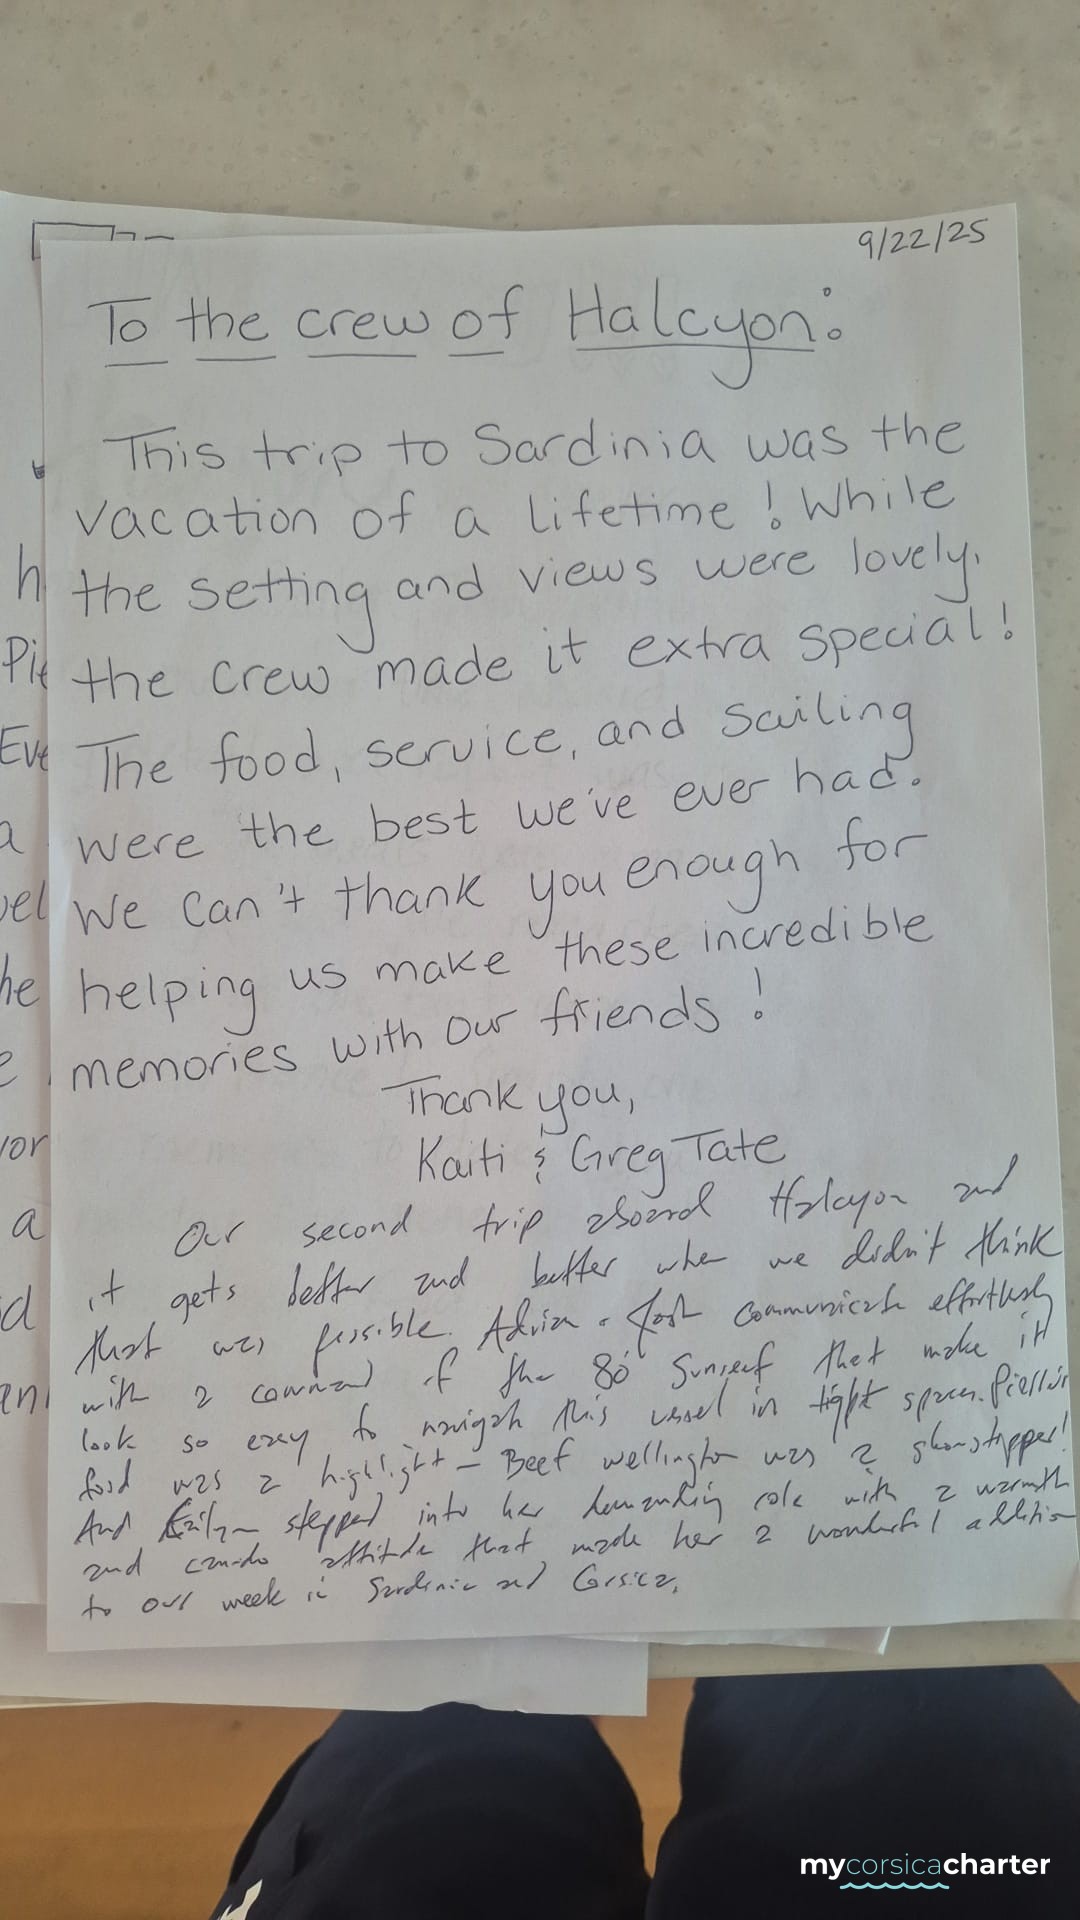 9/22/25
To the crew of Halcyon:
This trip to Sardinia was the
vacation of a lifetime! While
the setting and views were lovely,
the crew made it extra special!
The food, service, and sailing
were the best we've ever had.
We can't thank you enough for
helping us make these incredible
memories with our friends!
Thank you,
Kaiti & Greg Tate
Our second trip aboard Halcyon and
it gets better and better when we didn't think
that was possible. communicate effortlessly
with a command of the 80' Sunreef that make it
look so easy to navigate this vessel in tight spaces.
food was a highlight - Beef wellington was a showstopper!
And stepped into her demanding role with a warmth
and can-do attitude that made her a wonderful addition
to our week in Sardinia and Corsica.
h
Pie
Eve
a
vel
he
e
vor
a
d
en
mycorsicacharter